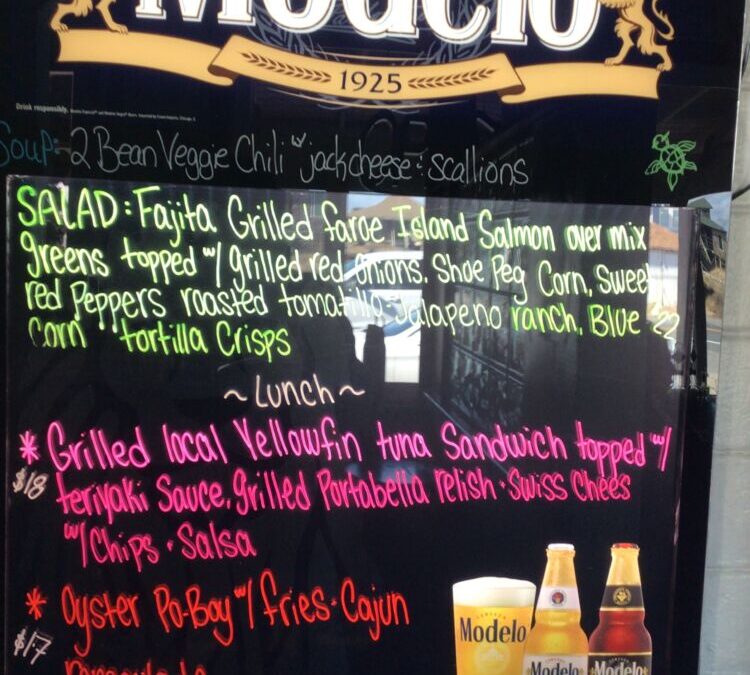 Modelo
1925
Drink responsibly.
Soup: 2 Bean Veggie Chili w/ jack cheese · scallions
SALAD: Fajita Grilled faroe Island Salmon over mix
greens topped w/ grilled red onions. Shoe Peg Corn, Sweet
red Peppers roasted tomatillo · Jalapeno ranch, Blue 22
Corn tortilla Crisps
~ Lunch ~
* Grilled local Yellowfin tuna Sandwich topped w/
$18 teriyaki Sauce, grilled Portabella relish · Swiss Chees
w/ Chips · Salsa
* Oyster Po-Boy w/ fries · Cajun
$17
Modelo
Modelo Modelo